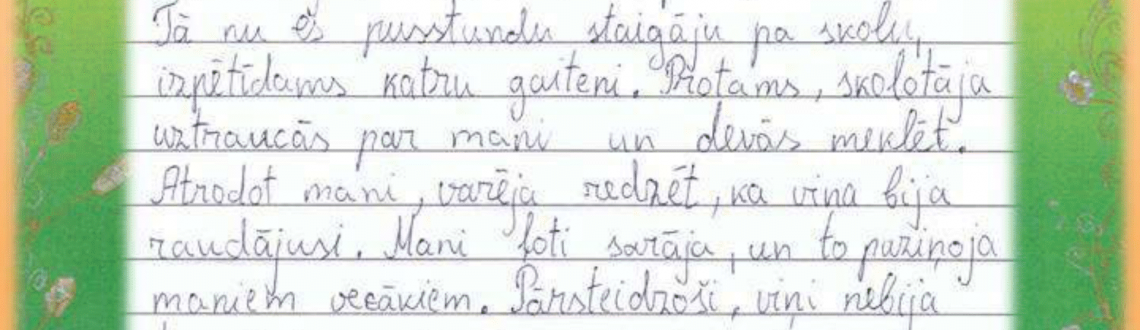 Tā nu es pusstundu staigāju pa skolu,
izpētīdams katru gaiteni. Protams, skolotāja
uztraucās par mani un devās meklēt.
Atrodot mani, varēja redzēt, ka viņa bija
raudājusi. Mani ļoti sarāja, un to paziņoja
maniem vecākiem. Pārsteidzoši, viņi nebija